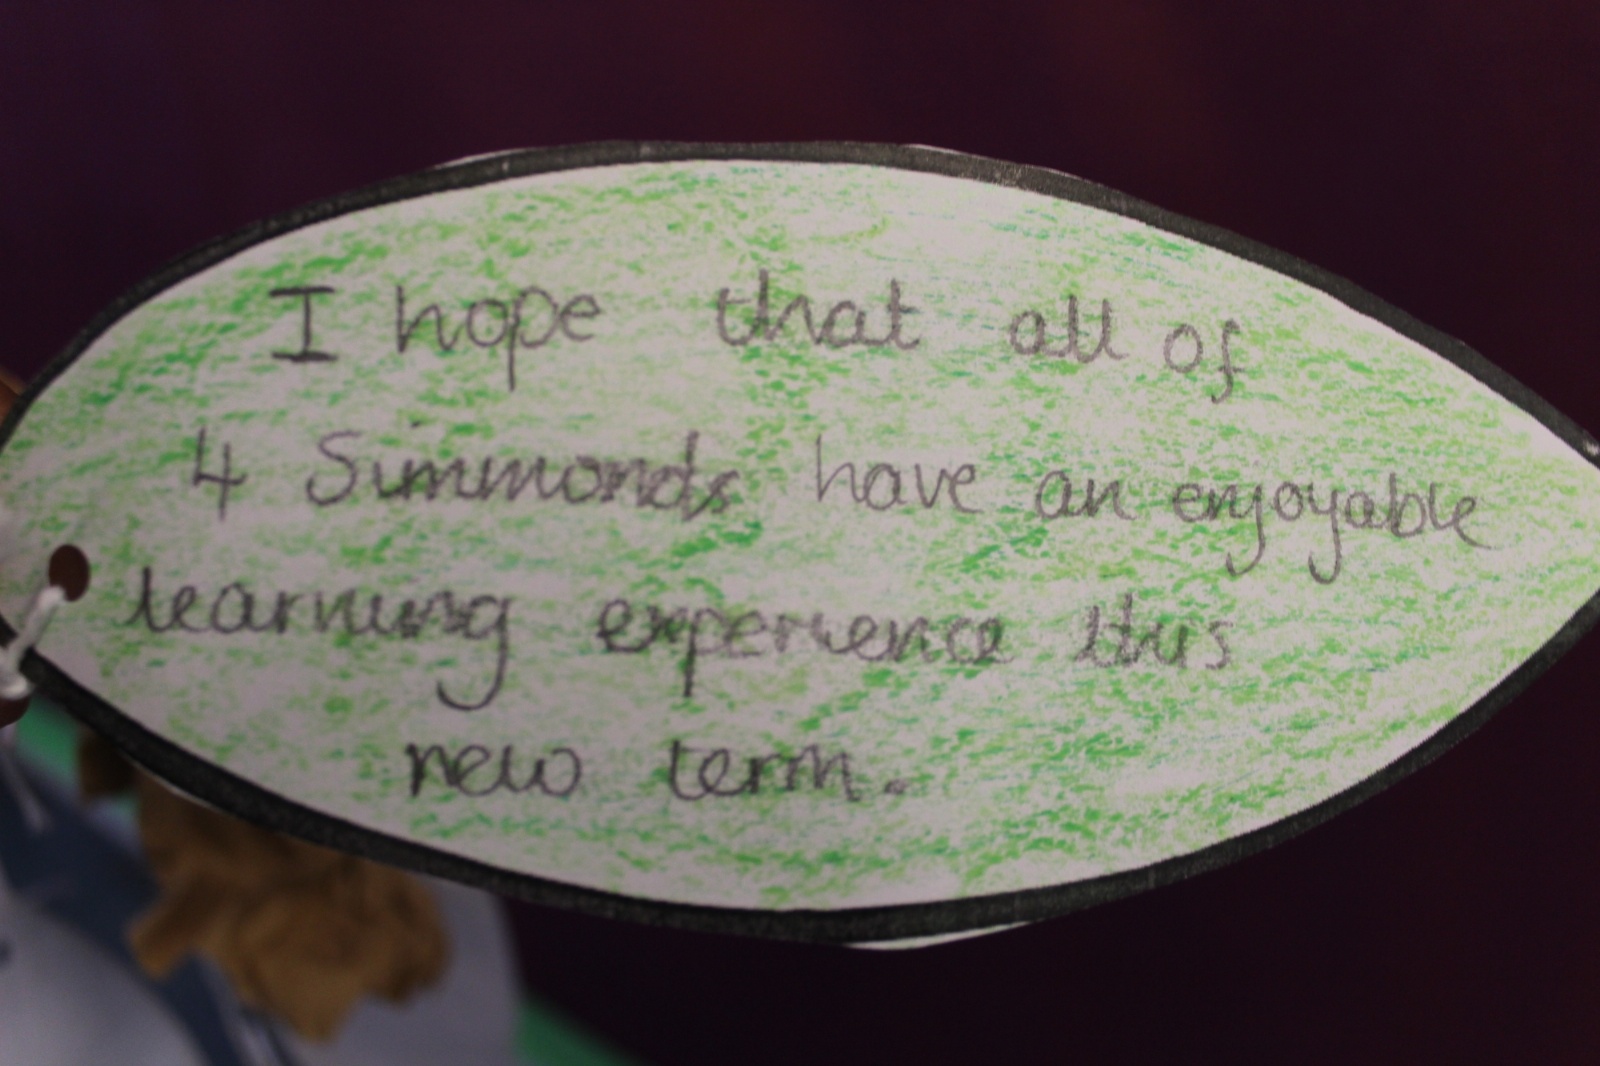 I hope that all of
4 Simmonds have an enjoyable
learning experience this
new term.